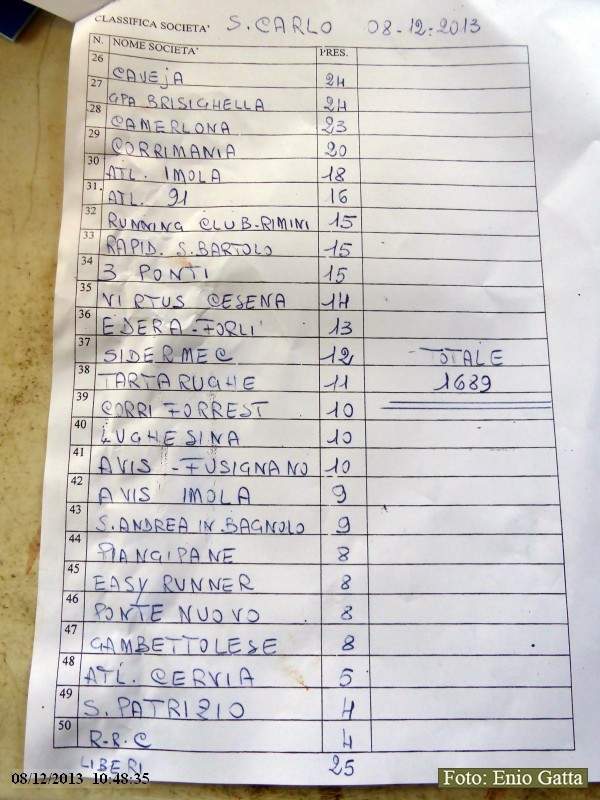 CLASSIFICA SOCIETA' S. CARLO 08-12-2013
N. NOME SOCIETA' PRES.
26 CAVEJA 24
27 GPA BRISIGHELLA 24
28 CAMERLONA 23
29 CORRIMANIA 20
30 ATL. IMOLA 18
31. ATL. 91 16
32 RUNNING CLUB-RIMINI 15
33 RAPID. S. BARTOLO 15
34 3 PONTI 15
35 VIRTUS CESENA 14
36 EDERA-FORLI' 13
37 SIDERMEC 12 TOTALE
38 TARTARUGHE 11 1689
39 CORRI FORREST 10
40 LUGHESINA 10
41 AVIS - FUSIGNANO 10
42 AVIS IMOLA 9
43 S. ANDREA IN BAGNOLO 9
44 PIANGIPANE 8
45 EASY RUNNER 8
46 PONTE NUOVO 8
47 GAMBETTOLESE 8
48 ATL. CERVIA 5
49 S. PATRIZIO 4
50 R-R-C 4
LIBERI 25
08/12/2013 10:48:35
Foto: Enio Gatta